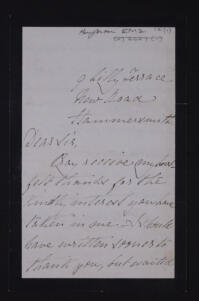 9 Lilly Terrace
New Road
Hammersmith
Dear Sir,
Pray receive my heart
felt thanks for the
kindly interest you have
taken in me. I should
have written sooner to
thank you, but waited